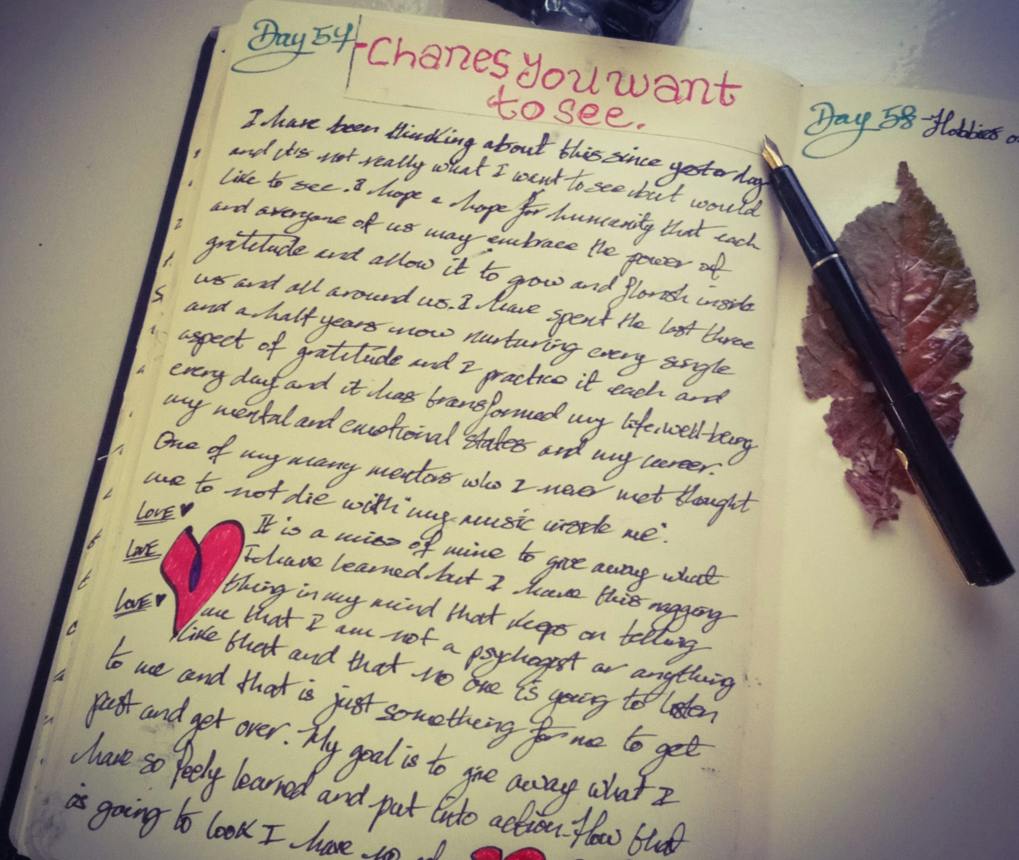 Day 54
-Chanes You want
to see.
I have been thinking about this since yesterday
and it's not really what I want to see but would
like to see. I hope a hope for humanity that each
and averyone of us may embrace the power of
gratitude and allow it to grow and florish inside
us and all around us. I have spent the last three
and a half years now nurturing every single
aspect of gratitude and I practice it each and
every day and it has transformed my life, well-being
my mental and emotional states and my career.
One of my many mentors who I never met thought
me to not die with my music inside me".
LOVE
LOVE
LOVE
It is a miss of mine to give away what
I have learned but I have this nagging
thing in my mind that keeps on telling
me that I am not a psychogist or anything
like that and that no one is going to listen
to me and that is just something for me to get
past and get over. My goal is to give away what I
have so feely learned and put into action. How that
is going to look I have no
Day 58 - Hobbies